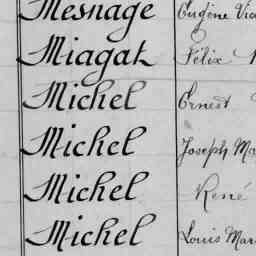 Mesnage Eugène
Miagat Félix
Michel Ernest
Michel Joseph
Michel René
Michel Louis